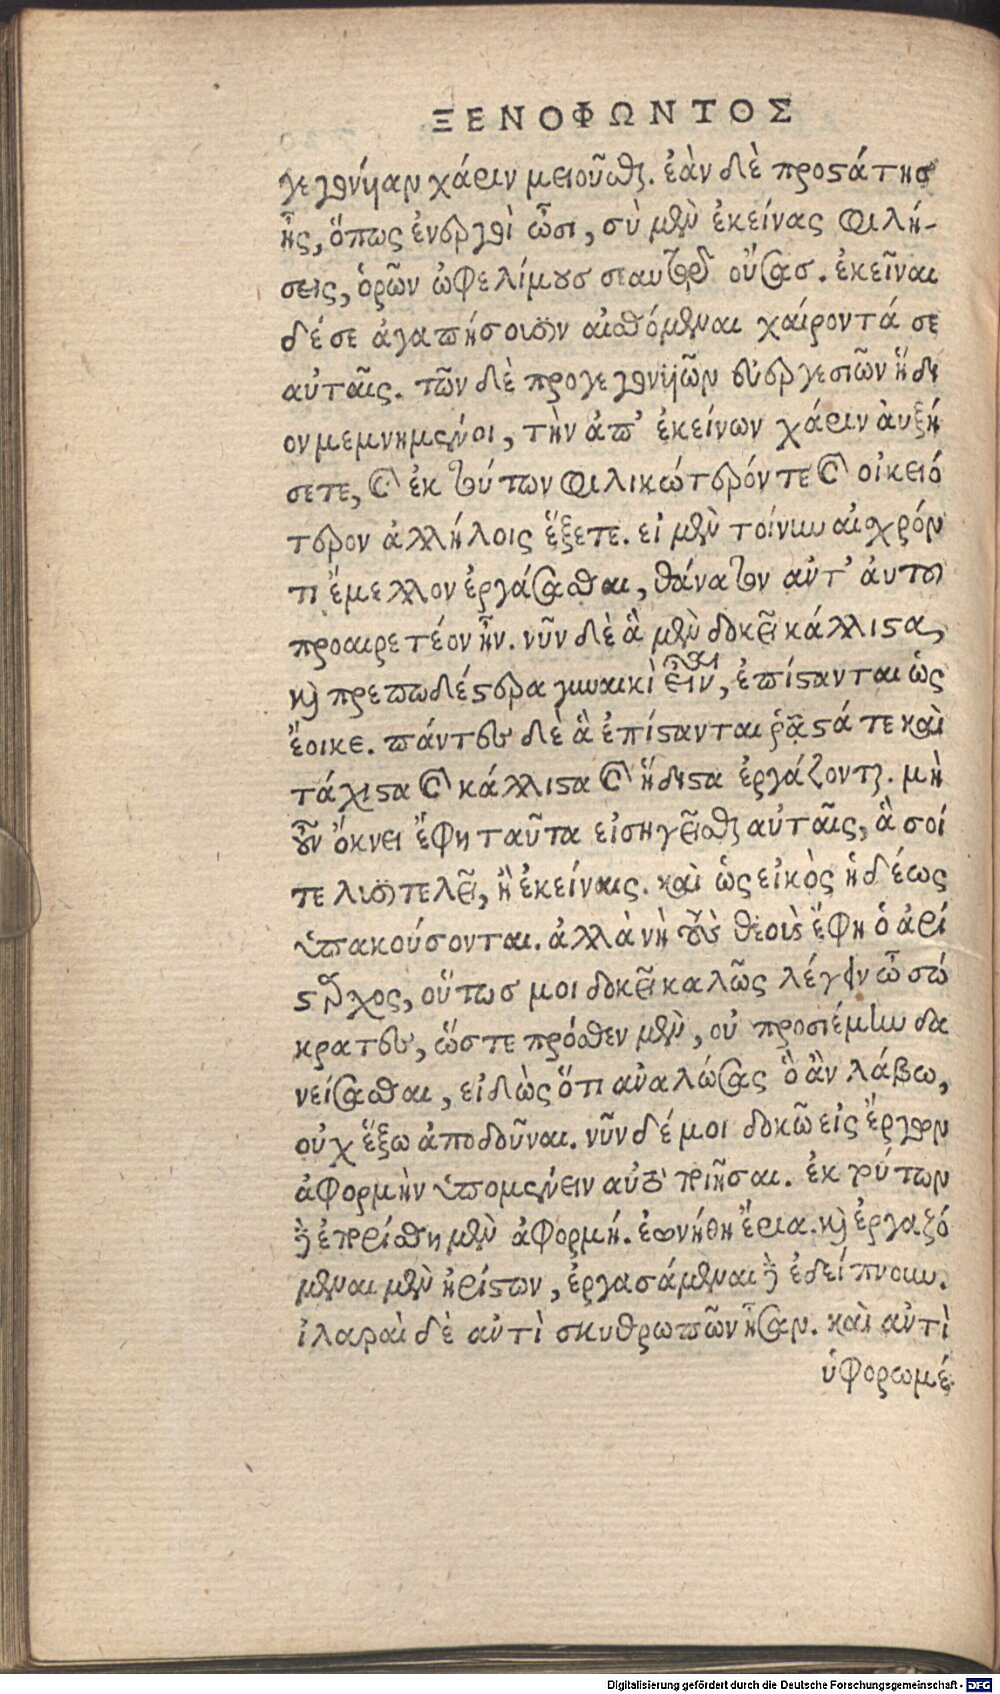 ΞΕΝΟΦΩΝΤΟΣ
γεγονυῖαν χάριν μειοῦσθαι. ἐὰν δὲ προστάτησ
ᾖς, ὅπως ἐνεργοὶ ὦσι, σὺ μὲν ἐκείνας φιλή-
σεις, ὁρῶν ὠφελίμουσ σεαυτῷ οὔσασ. ἐκεῖναι
δέ σε ἀγαπήσουσιν αἰσθόμεναι χαίροντά σε
αὐταῖς. τῶν δὲ προγεγονυιῶν εὐεργεσιῶν ἥδι
ον μεμνημένοι, τὴν ἀπ' ἐκείνων χάριν ἀυξή
σετε, καὶ ἐκ τούτων φιλικώτερόν τε καὶ οἰκειό
τερον ἀλλήλοις ἕξετε. εἰ μὲν τοίνυν αἰσχρόν
τι ἔμελλον ἐργάσασθαι, θάνατον αὐτ' ἀυτοῦ
προαιρετέον ἦν. νῦν δὲ ἃ μὲν δοκεῖ κάλλιστα,
καὶ πρεπωδέστερα γυναικὶ εἶναι, ἐπίστανται ὡς
ἔοικε. πάντες δὲ ἃ ἐπίστανται ῥᾷστά τε καὶ
τάχιστα καὶ κάλλιστα καὶ ἥδιστα ἐργάζονται. μὴ
οὖν ὄκνει ἔφη ταῦτα εἰσηγεῖσθαι αὐταῖς, ἃ σοί
τε λυσιτελεῖ, ἢ ἐκείναις. καὶ ὡς εἰκὸς ἡδέως
ὑπακούσονται. ἀλλὰ νὴ τοὺς θεοὺς ἔφη ὁ ἀρί
σταρχος, οὕτωσ μοι δοκεῖ καλῶς λέγειν ὦ σώ
κρατες, ὥστε πρόσθεν μὲν, οὐ προσιέμην δα
νείσασθαι, εἰδὼς ὅτι αναλώσας ὃ ἂν λάβω,
οὐχ ἕξω ἀποδοῦναι. νῦν δέ μοι δοκῶ εἰς ἔργων
ἀφορμὴν ὑπομένειν αὐτὸ ποιῆσαι. ἐκ τούτων
δὲ ἐπορίσθη μὲν ἀφορμή. ἐωνήθη ἔρια. καὶ ἐργαζό
μεναι μὲν ἠρίστων, ἐργασάμεναι δὲ ἐδείπνουν.
ἱλαραὶ δὲ αὐτὶ σκυθρωπῶν ἦσαν. καὶ αὐτὶ
ὑφορωμέ